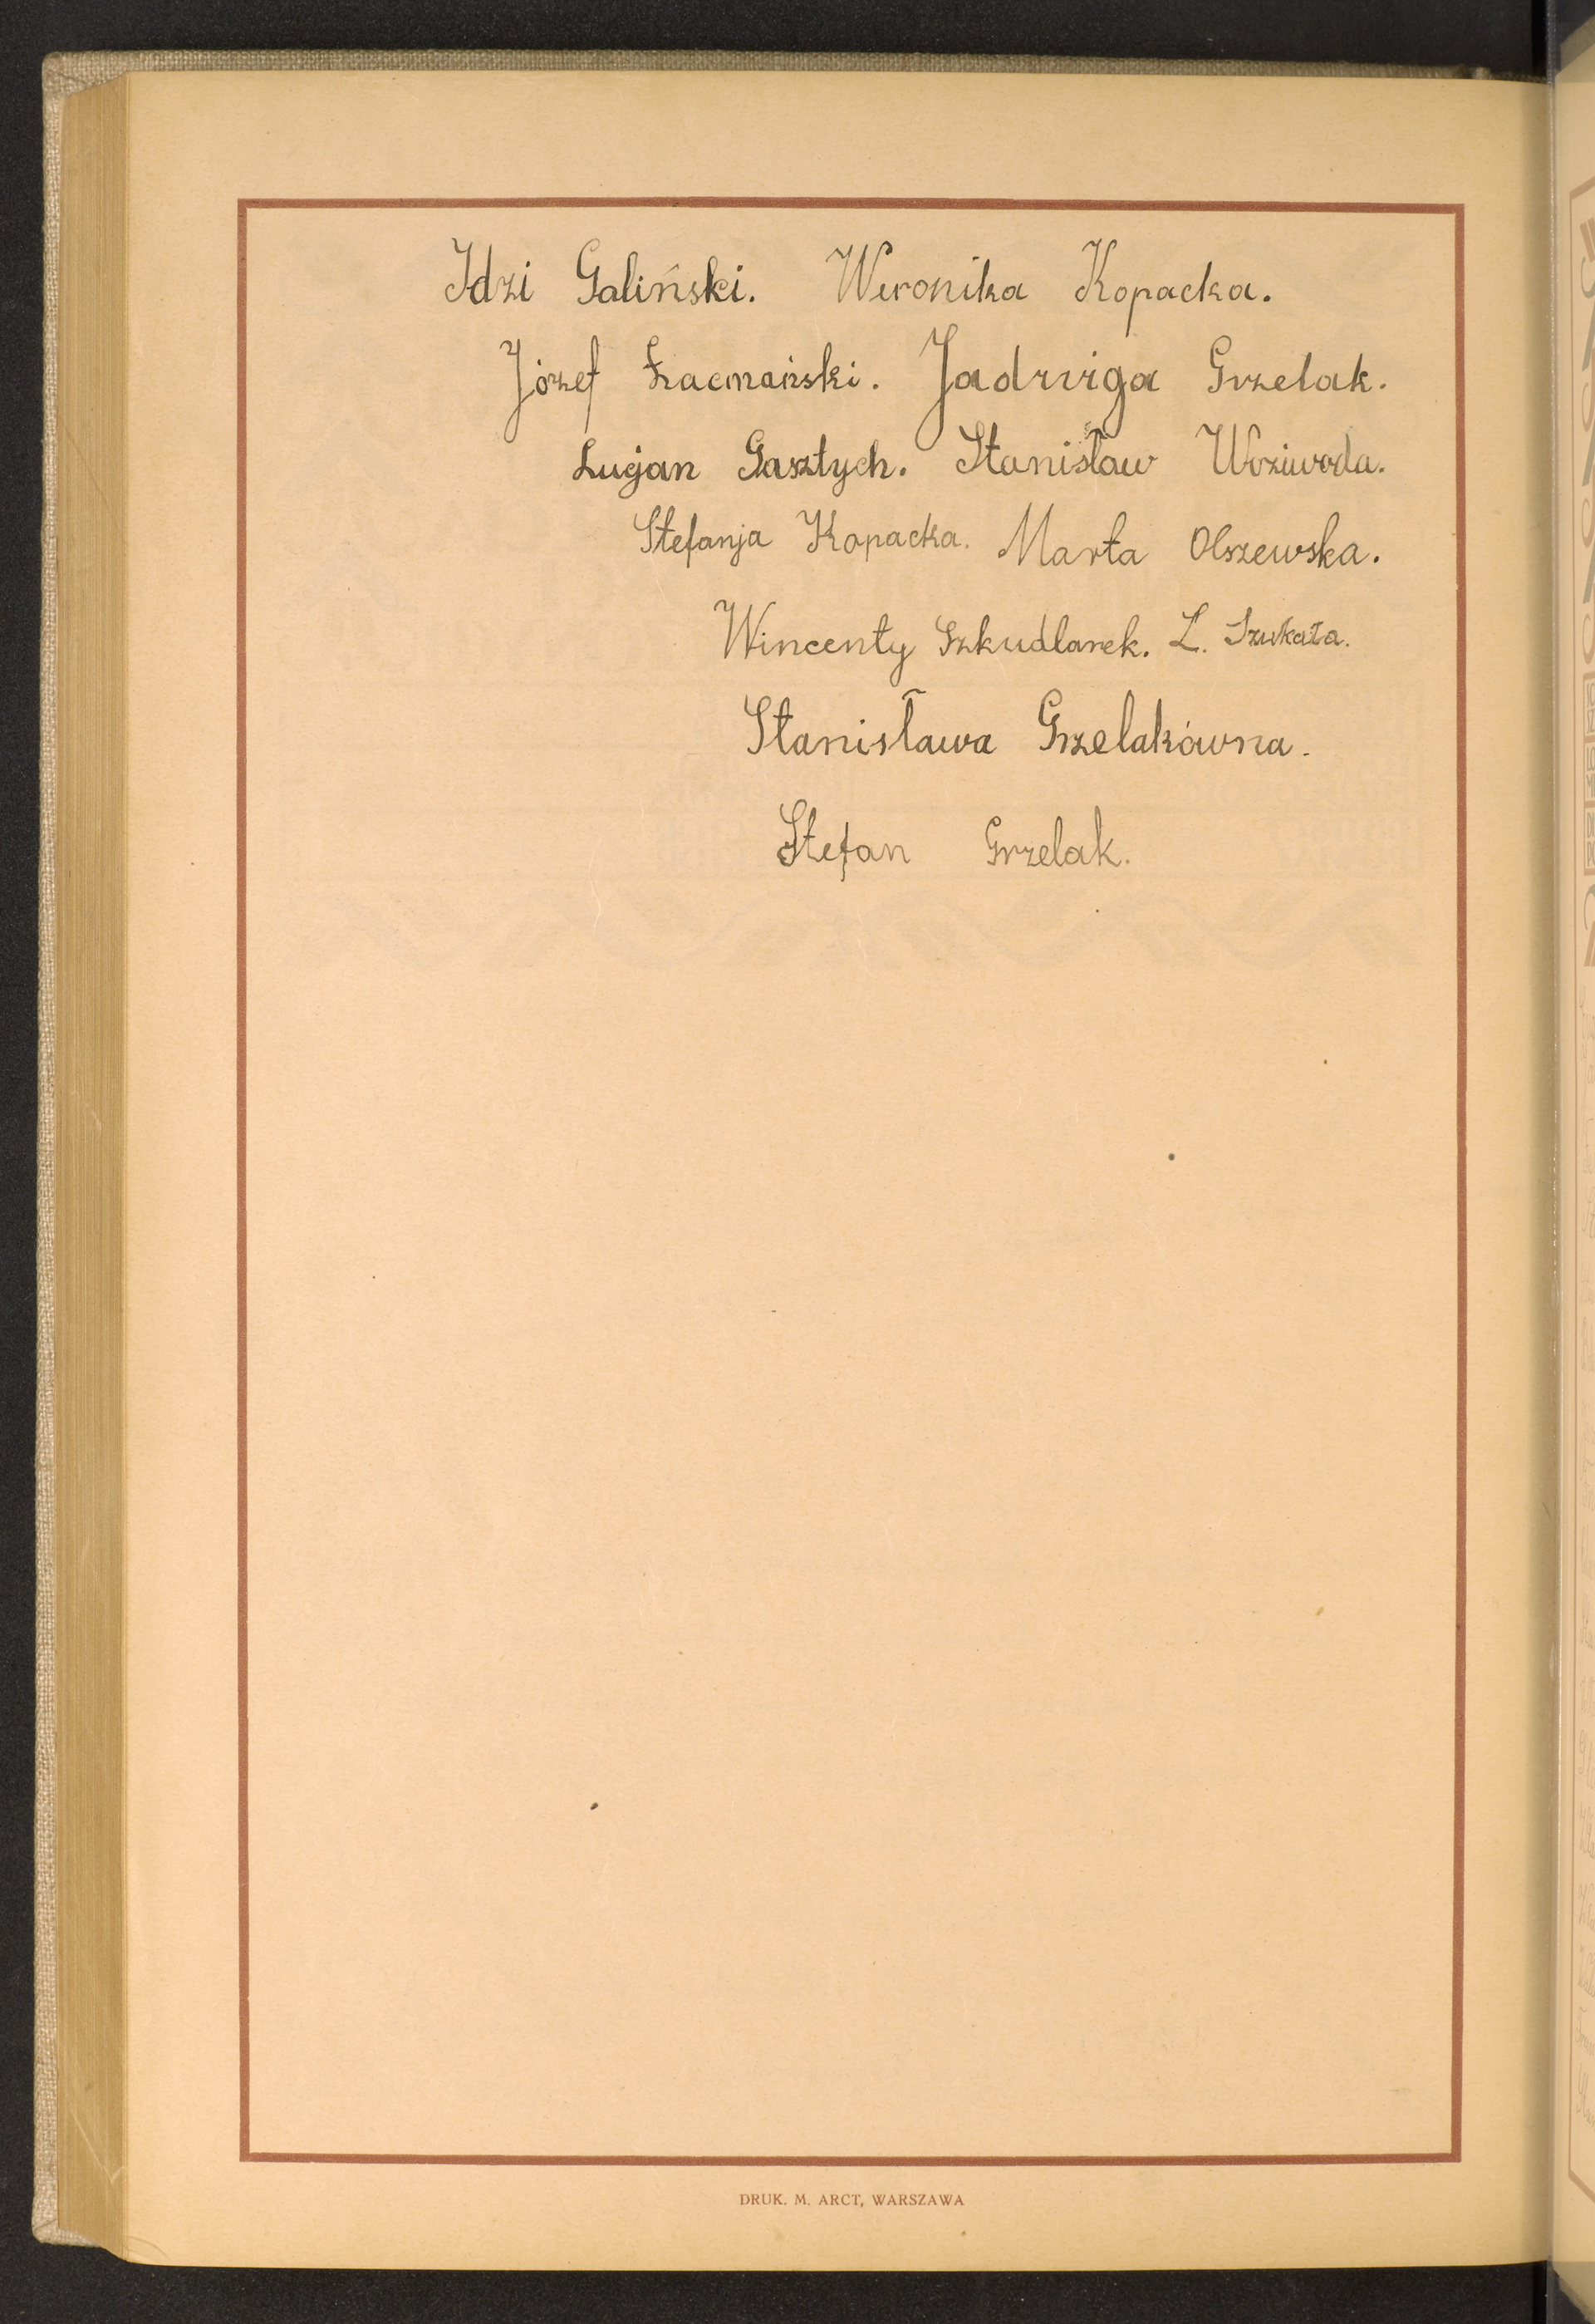 Idzi Galiński. Weronika Kopacka.
Józef Jadwiga Grzelak.
Lucjan Gasztych. Stanisław Woziwoda.
Stefanja Kopacka. Marta Olszewska.
Wincenty Szkudlarek. L. Szukała.
Stanisława Grzelakówna.
Stefan Grzelak.
DRUK. M. ARCT, WARSZAWA